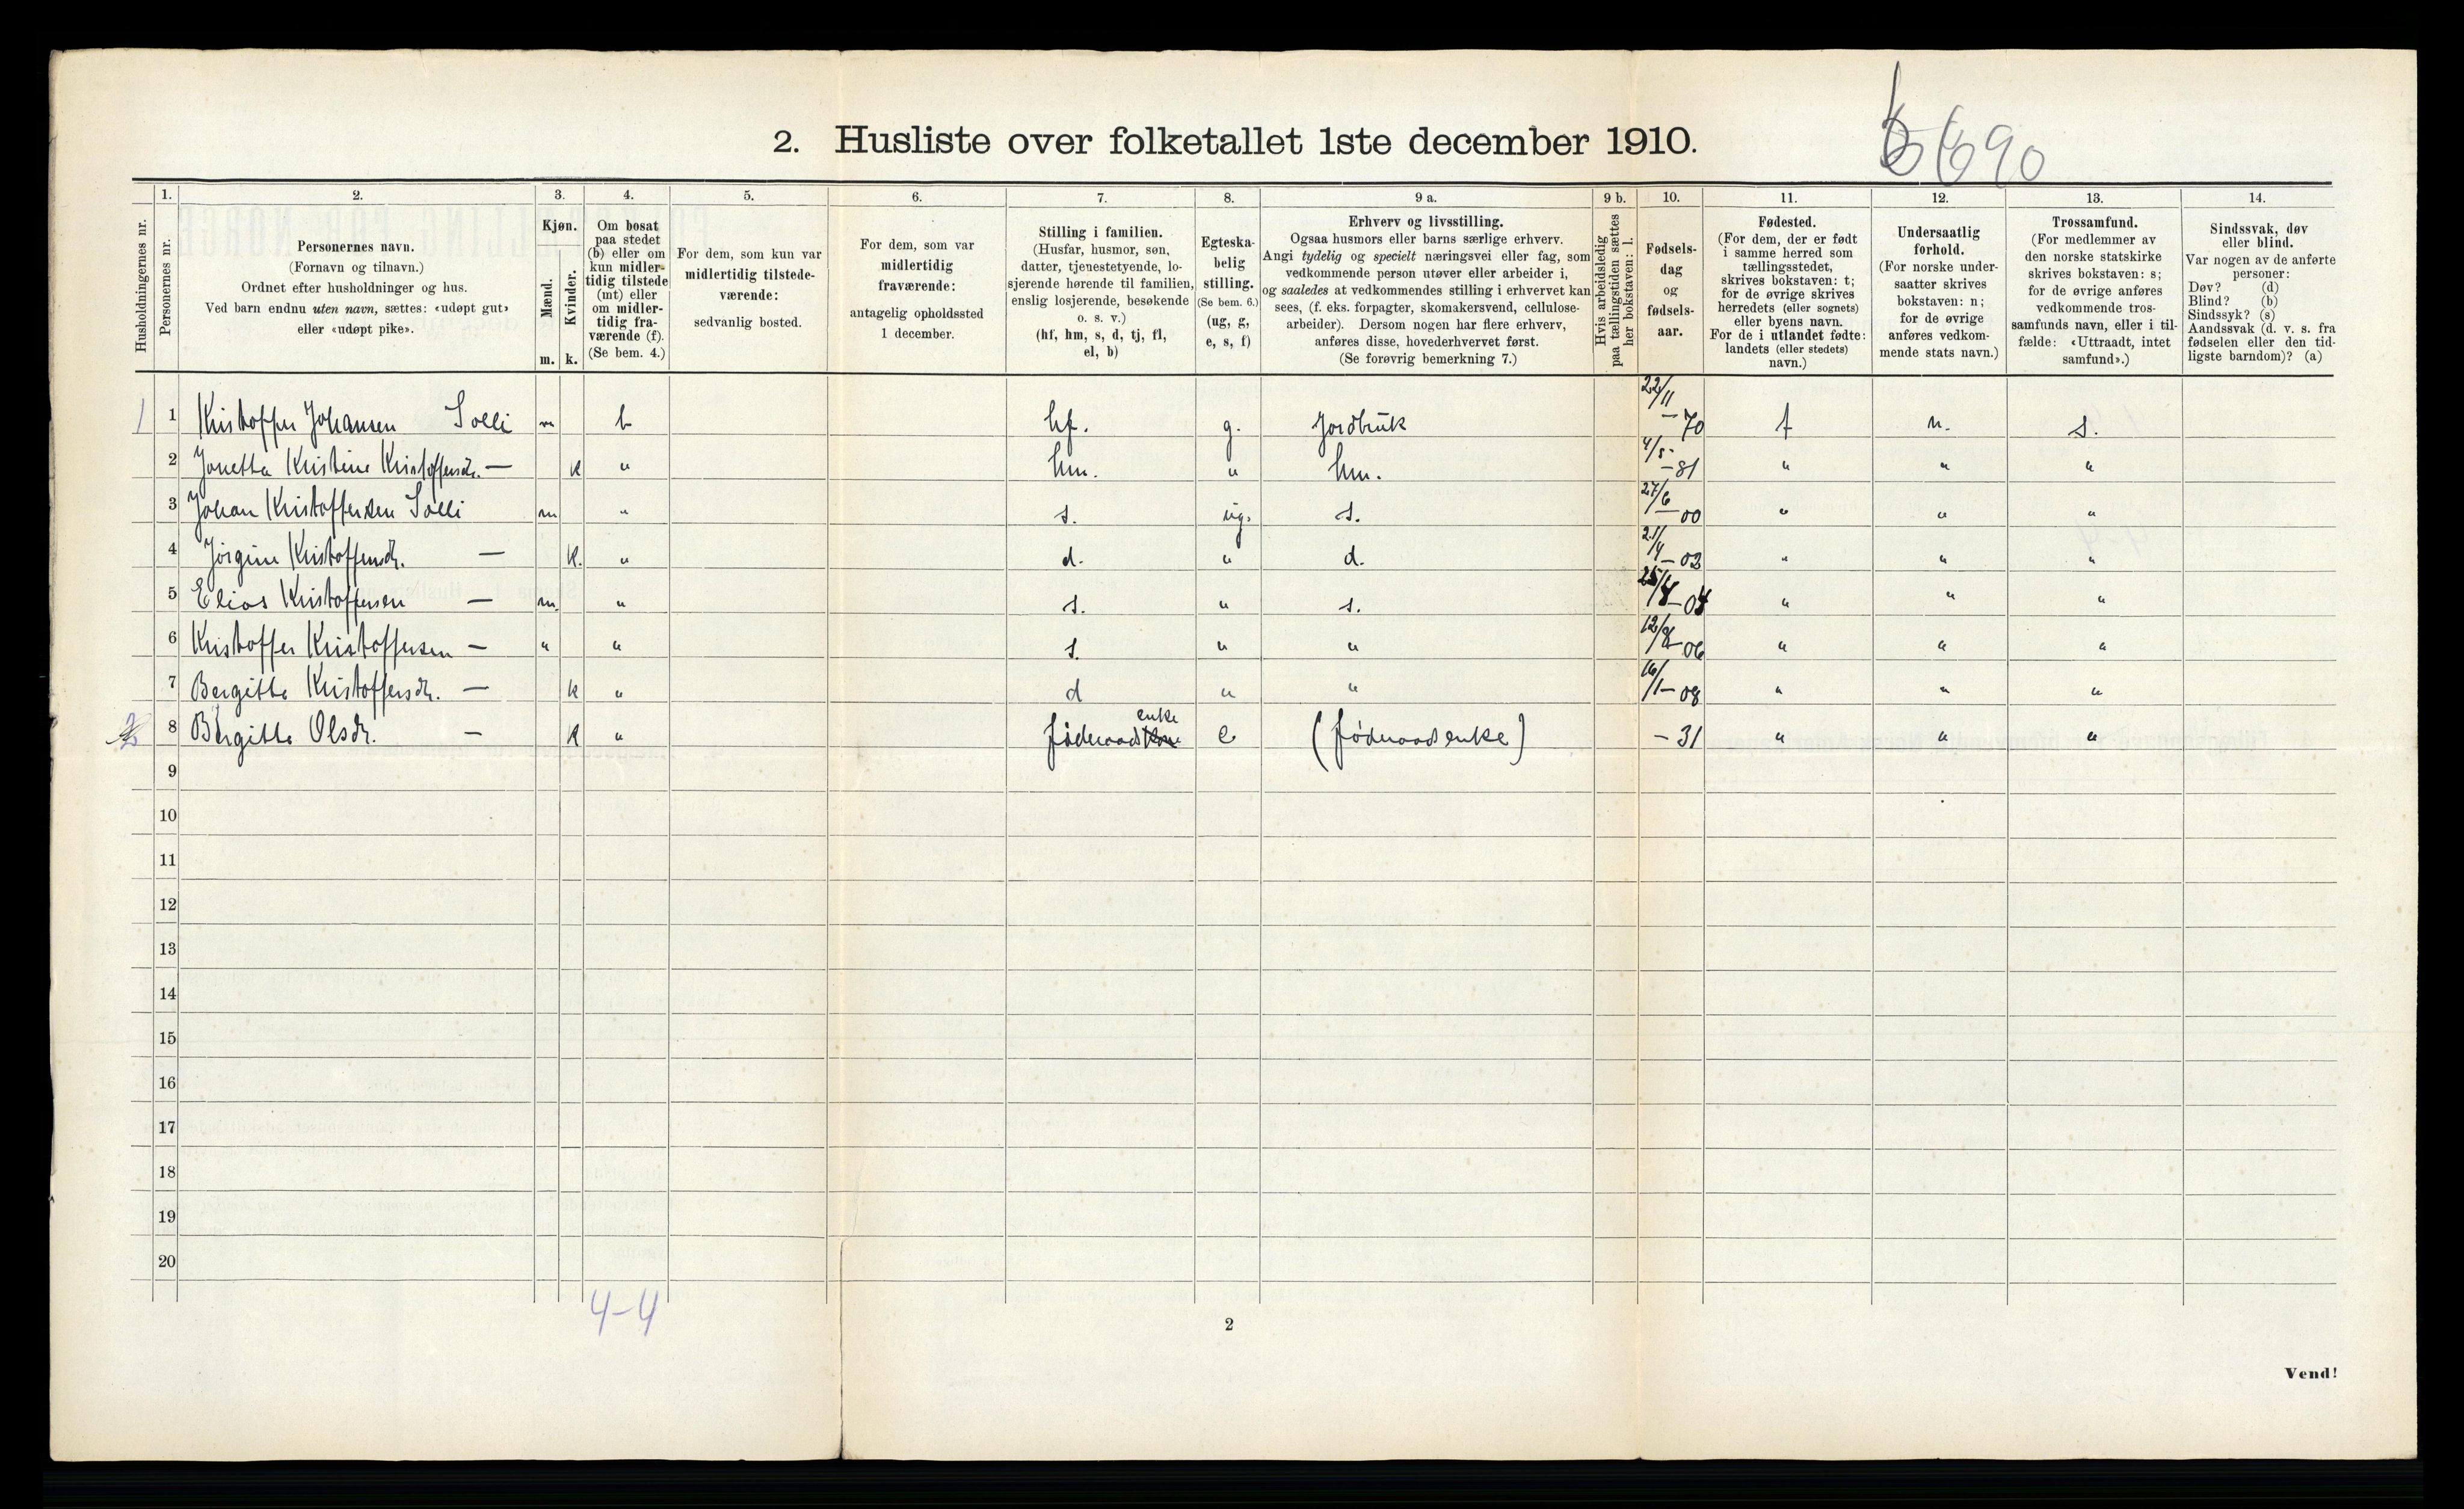 2. Husliste over folketallet 1ste december 1910.
6690
Husholdningernes nr.
1.
Personernes nr.
2.
Personernes navn.
(Fornavn og tilnavn.)
Ordnet efter husholdninger og hus.
Ved barn endnu uten navn, sættes: «udøpt gut»
eller «udøpt pike».
3.
Kjøn.
Mænd.
Kvinder.
m. k.
4.
Om bosat
paa stedet
(b) eller om
kun midler-
tidig tilstede
(mt) eller
om midler-
tidig fra-
værende (f).
(Se bem. 4.)
5.
For dem, som kun var
midlertidig tilstede-
værende:
sedvanlig bosted.
6.
For dem, som var
midlertidig
fraværende:
antagelig opholdssted
1 december.
7.
Stilling i familien.
(Husfar, husmor, søn,
datter, tjenestetyende, lo-
sjerende hørende til familien,
enslig losjerende, besøkende
o. s. v.)
(hf, hm, s, d, tj, fl,
el, b)
8.
Egteska-
belig
stilling.
(Se bem. 6.)
(ug, g,
e, s, f)
9 a.
Erhverv og livsstilling.
Ogsaa husmors eller barns særlige erhverv.
Angi tydelig og specielt næringsvei eller fag, som
vedkommende person utøver eller arbeider i,
og saaledes at vedkommendes stilling i erhvervet kan
sees, (f. eks. forpagter, skomakersvend, cellulose-
arbeider). Dersom nogen har flere erhverv,
anføres disse, hovederhvervet først.
(Se forøvrig bemerkning 7.)
9 b.
Hvis arbeidsledig
paa tællingstiden sættes
her bokstaven: l.
10.
Fødsels-
dag
og
fødsels-
aar.
11.
Fødested.
(For dem, der er født
i samme herred som
tællingsstedet,
skrives bokstaven: t;
for de øvrige skrives
herredets (eller sognets)
eller byens navn.
For de i utlandet fødte:
landets (eller stedets)
navn.)
12.
Undersaatlig
forhold.
(For norske under-
saatter skrives
bokstaven: n;
for de øvrige
anføres vedkom-
mende stats navn.)
13.
Trossamfund.
(For medlemmer av
den norske statskirke
skrives bokstaven: s;
for de øvrige anføres
vedkommende tros-
samfunds navn, eller i til-
fælde: «Uttraadt, intet
samfund».)
14.
Sindssvak, døv
eller blind.
Var nogen av de anførte
personer:
Døv? (d)
Blind? (b)
Sindssyk? (s)
Aandssvak (d. v. s. fra
fødselen eller den tid-
ligste barndom)? (a)
1 1 Kristoffer Johansen Solli m b hf. g. Jordbruk 22/11 - 70 t n. s.
2 Jonetta Kristine Kristoffersdr. — k " hm. " hm. 4/5 - 81 " " "
3 Johan Kristoffersen Solli m " s. ug. s. 27/6 - 00 " " "
4 Jørgine Kristoffersdr. — k. " d. " d. 21/4 - 02 " " "
5 Elias Kristoffersen — m. " s. " s. 04 " " "
6 Kristoffer Kristoffersen — " " s. " " 12/8 - 06 " " "
7 Bergitte Kristoffersdr. — k " d " " 16/1 - 08 " " "
2 8 Bergitte Olsdr. — k " føderaadsenke e (føderaadsenke) - 31 " " "
9
10
11
12
13
14
15
16
17
18
19
20
4-4
2
Vend!